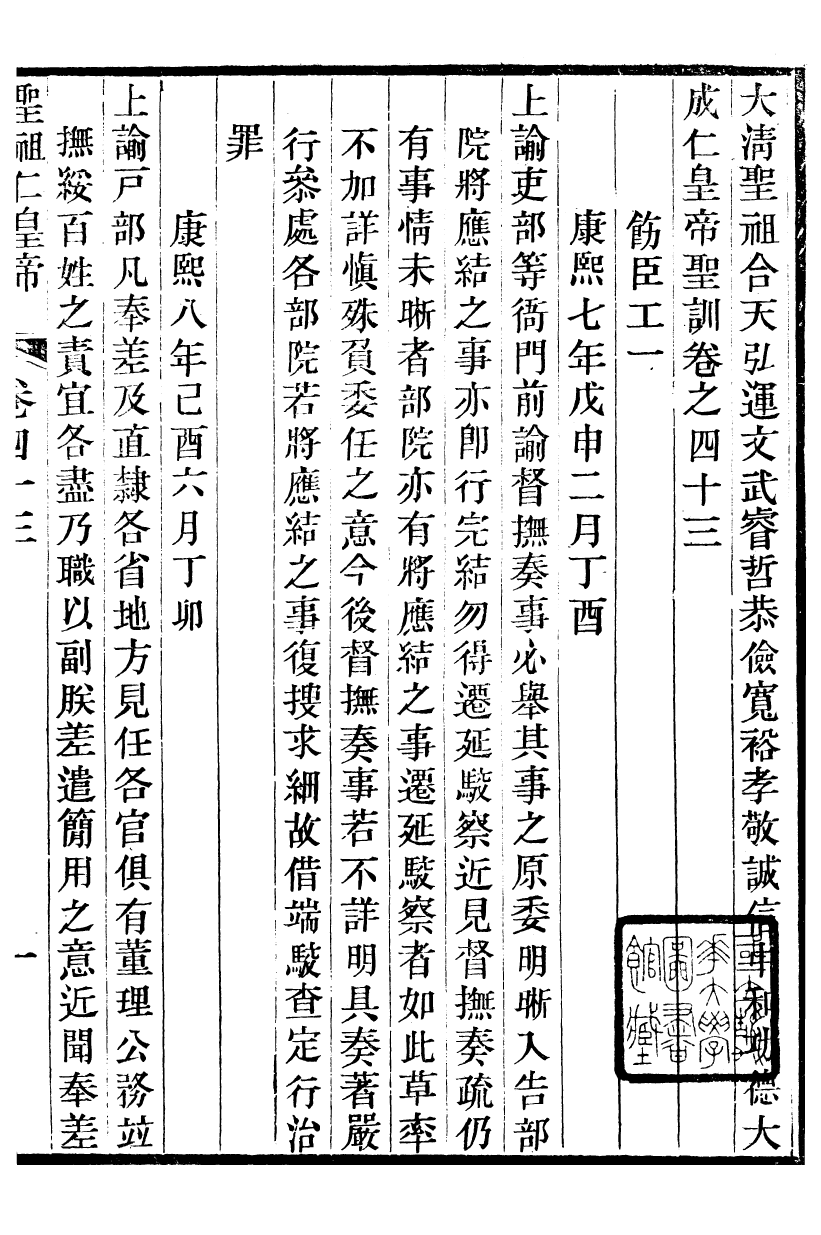 大清聖祖合天弘運文武睿哲恭儉寬裕孝敬誠信中和功德大
成仁皇帝聖訓卷之四十三
飭臣工一
康熙七年戊申二月丁酉
上諭吏部等衙門前諭督撫奏事必舉其事之原委明晰入告部
院將應結之事亦卽行完結勿得遷延駁察近見督撫奏疏仍
有事情未晰者部院亦有將應結之事遷延駁察者如此草率
不加詳愼殊負委任之意今後督撫奏事若不詳明具奏著嚴
行叅處各部院若將應結之事復搜求細故借端駁查定行治
罪
康熙八年己酉六月丁卯
上諭戸部凡奉差及直隸各省地方見任各官俱有董理公務竝
撫綏百姓之責宜各盡乃職以副朕差遣簡用之意近聞奉差
聖祖仁皇帝 卷四十三 一
大學
圖書
館藏